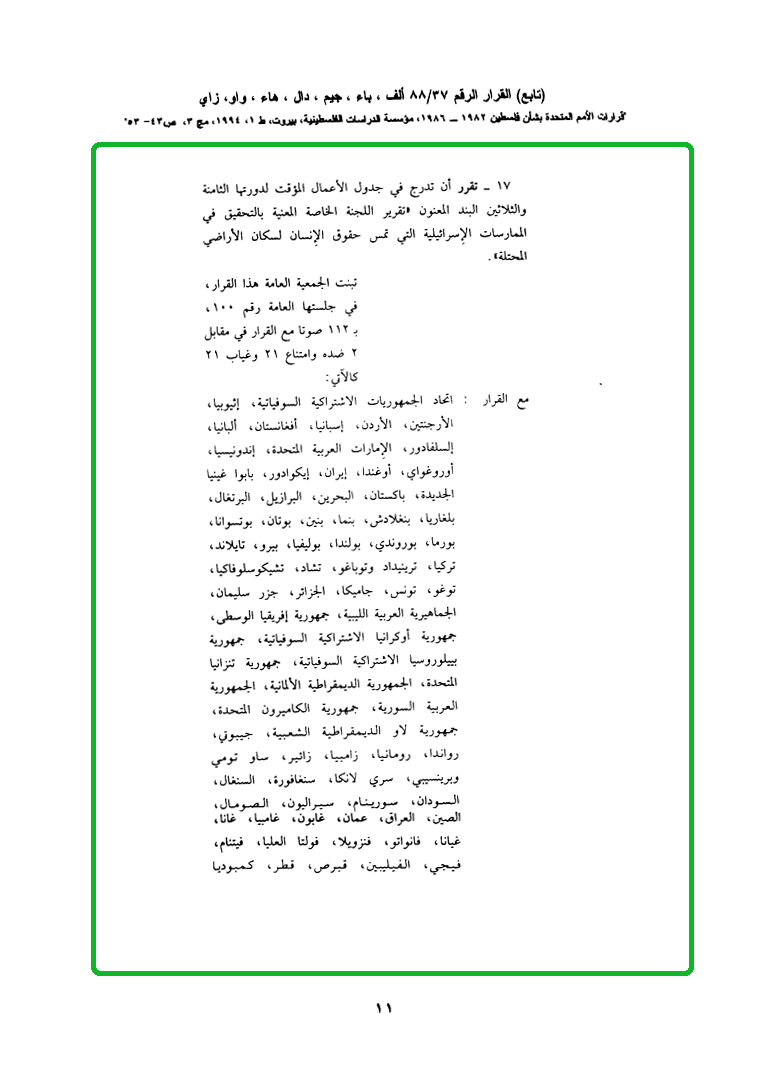 (تابع) القرار الرقم ٨٨/٣٧ ألف ، باء ، جيم ، دال ، هاء ، واو، زاي
قرارات الأمم المتحدة بشأن فلسطين ١٩٨٢ ــ ١٩٨٦، مؤسسة الدراسات الفلسطينية، بيروت، ط ١، ١٩٩٤، مج ٣، ص٤٣- ٥٣.
١٧ ــ تقرر أن تدرج في جدول الأعمال المؤقت لدورتها الثامنة
والثلاثين البند المعنون «تقرير اللجنة الخاصة المعنية بالتحقيق في
الممارسات الإسرائيلية التي تمس حقوق الإنسان لسكان الأراضي
المحتلة».
تبنت الجمعية العامة هذا القرار،
في جلستها العامة رقم ١٠٠،
بـ ١١٢ صوتا مع القرار في مقابل
٢ ضده وامتناع ٢١ وغياب ٢١
كالآتي:
مع القرار : اتحاد الجمهوريات الاشتراكية السوفياتية، إثيوبيا،
الأرجنتين، الأردن، إسبانيا، أفغانستان، ألبانيا،
إلسلفادور، الإمارات العربية المتحدة، إندونيسيا،
أوروغواي، أوغندا، إيران، إيكوادور، بابوا غينيا
الجديدة، باكستان، البحرين، البرازيل، البرتغال،
بلغاريا، بنغلادش، بنما، بنين، بوتان، بوتسوانا،
بورما، بوروندي، بولندا، بوليفيا، بيرو، تايلاند،
تركيا، ترينيداد وتوباغو، تشاد، تشيكوسلوفاكيا،
توغو، تونس، جاميكا، الجزائر، جزر سليمان،
الجماهيرية العربية الليبية، جمهورية إفريقيا الوسطى،
جمهورية أوكرانيا الاشتراكية السوفياتية، جمهورية
بييلوروسيا الاشتراكية السوفياتية، جمهورية تنزانيا
المتحدة، الجمهورية الديمقراطية الألمانية، الجمهورية
العربية السورية، جمهورية الكاميرون المتحدة،
جمهورية لاو الديمقراطية الشعبية، جيبوتي،
رواندا، رومانيا، زامبيا، زائير، ساو تومي
وبرينسيبي، سري لانكا، سنغافورة، السنغال،
السودان، سورينام، سيراليون، الصومال،
الصين، العراق، عمان، غابون، غامبيا، غانا،
غيانا، فانواتو، فنزويلا، فولتا العليا، فيتنام،
فيجي، الفيليبين، قبرص، قطر، كمبوديا
١١